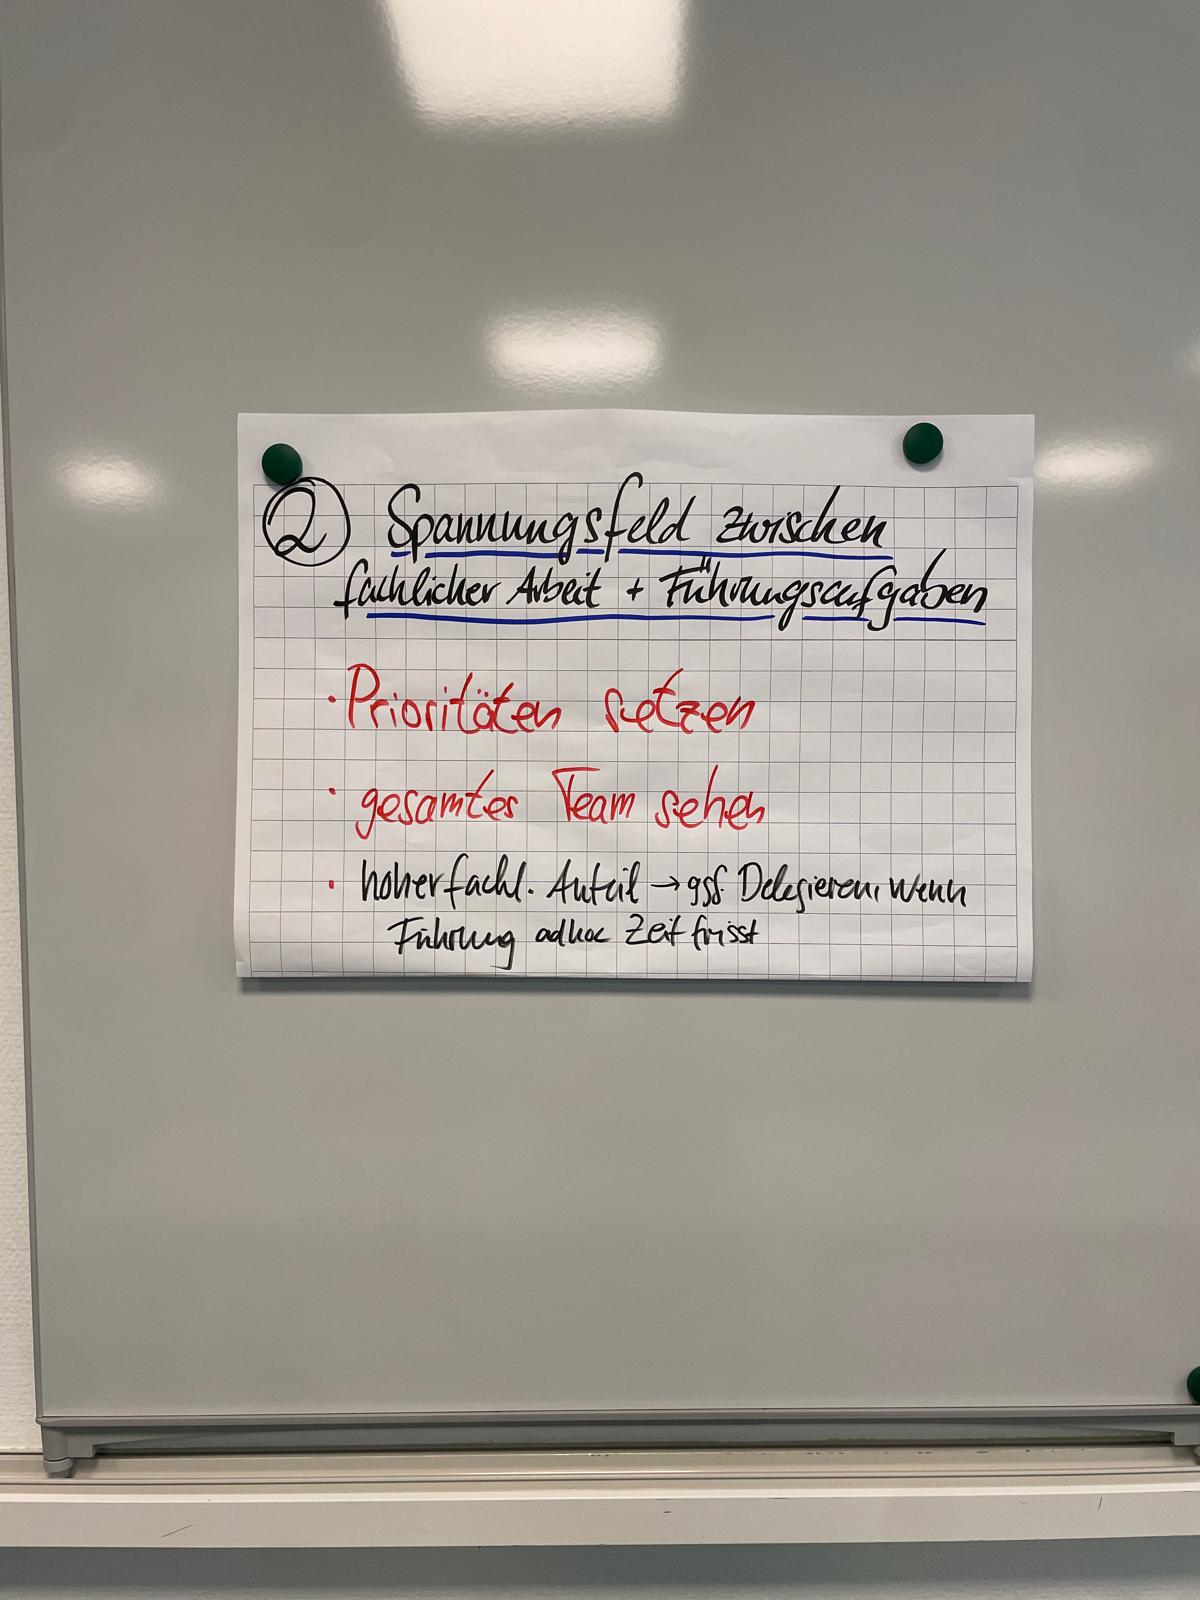 ② Spannungsfeld zwischen
fachlicher Arbeit + Führungsaufgaben
· Prioritäten setzen
· gesamtes Team sehen
· hoher fachl. Anteil → ggf. Delegieren, wenn
Führung adhoc Zeit frisst